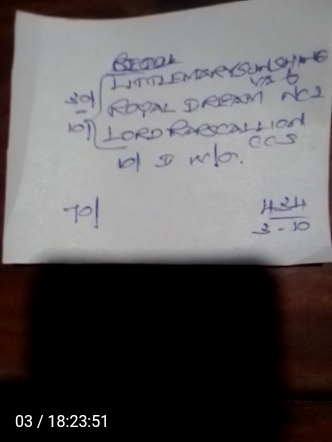 LITTLEMARYSUNSHINE
30/
ROYAL DREAM NC2
10/
LORD RAPSCALLION
CCS
10/ D W/O.
70/
434
3-10
03 / 18:23:51